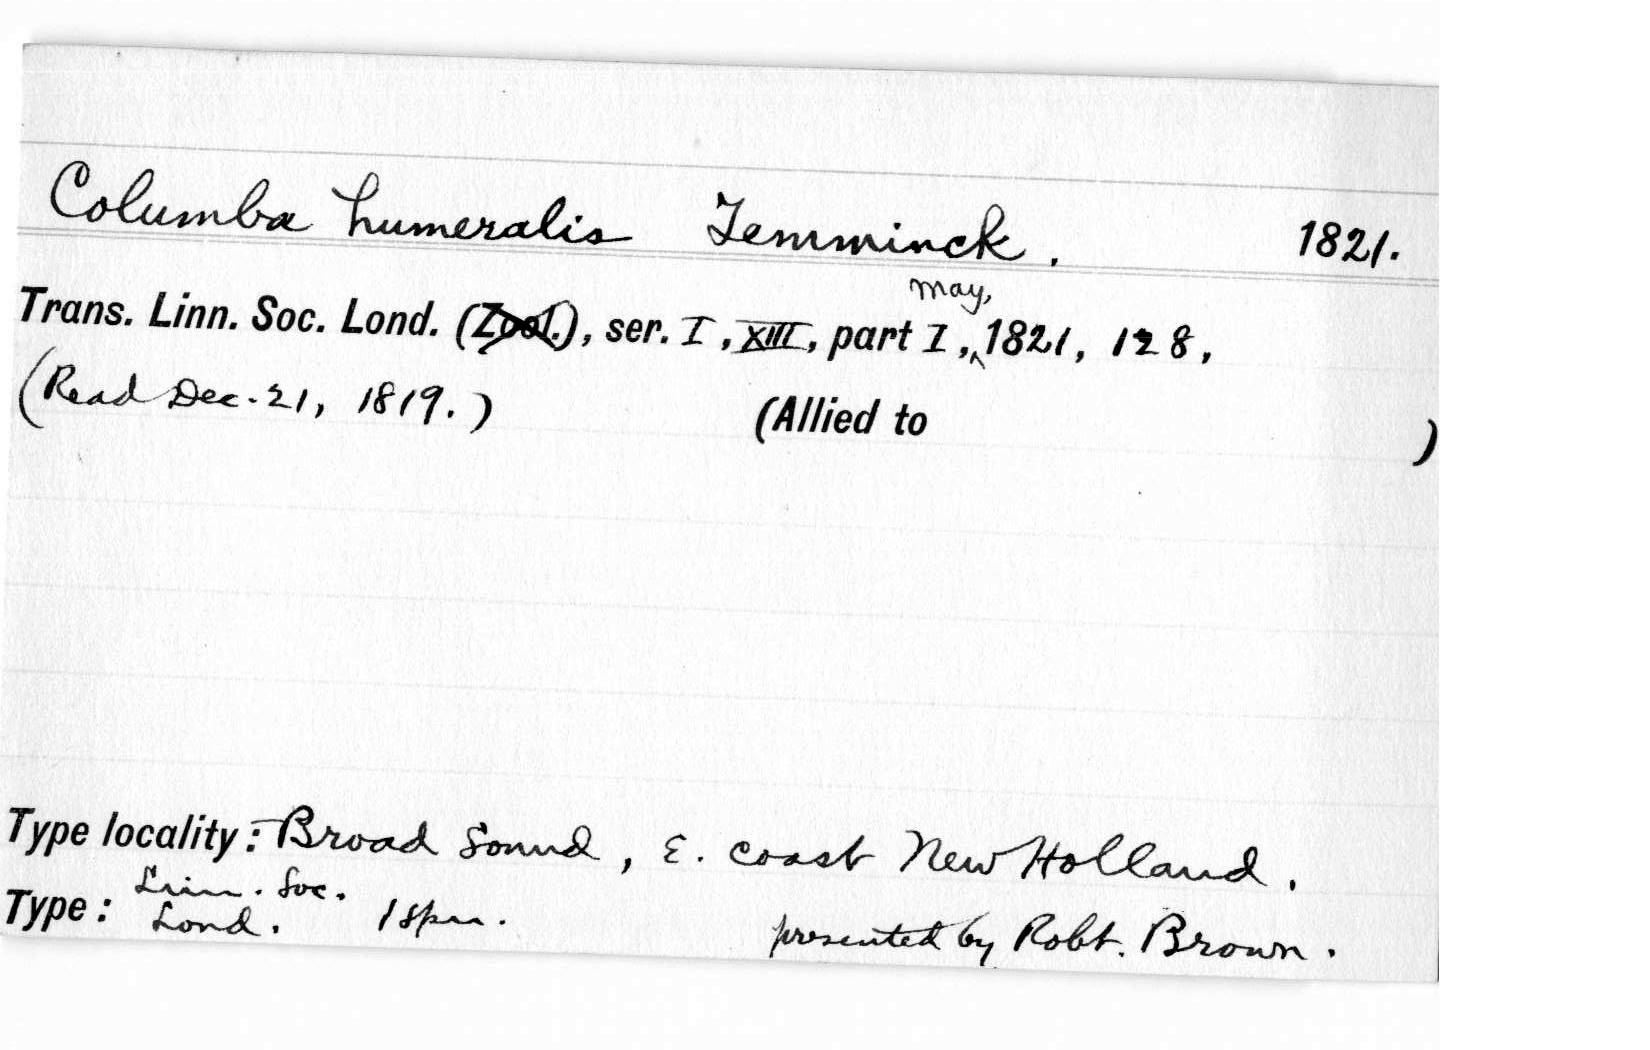 Columba humeralis Temminck. 1821.
may,
Trans. Linn. Soc. Lond. (Zool.), ser. I, XIII, part I, 1821, 128,
(Read Dec. 21, 1819.) (Allied to )
Type locality: Broad Sound, E. coast New Holland.
Linn. Soc.
Type: Lond. 1 spm. presented by Robt. Brown.